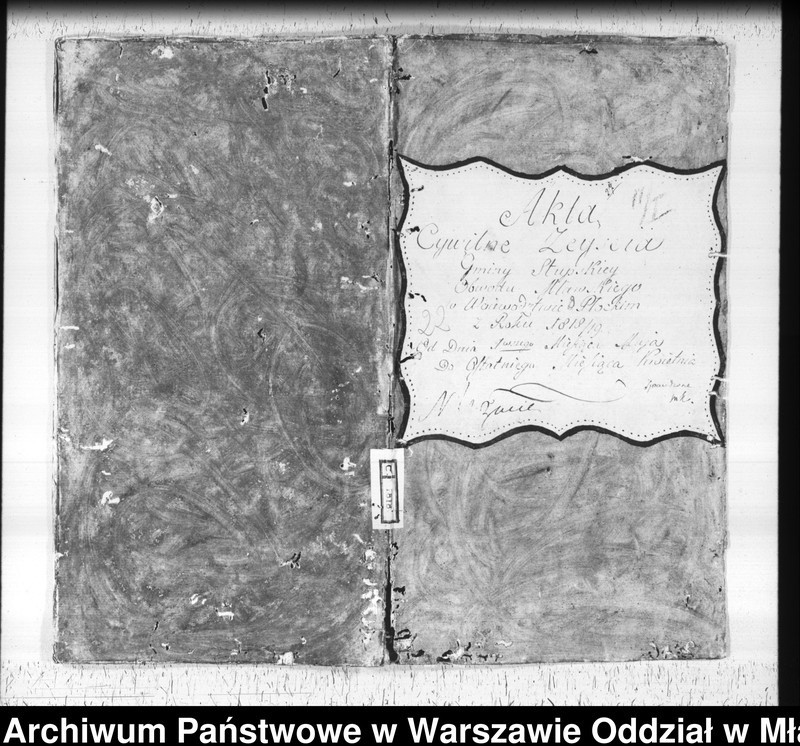 Akta
Cywilne Zeyścia
Gminy Słupskiey
Obwodu Mławskiego
w Woiewodztwie Płockim
22 z Roku 1818/19
Od Dnia 1 Miesiąca Maja
Do Ostatniego Miesiąca Kwietnia
1818
Archiwum Państwowe w Warszawie Oddział w Mła